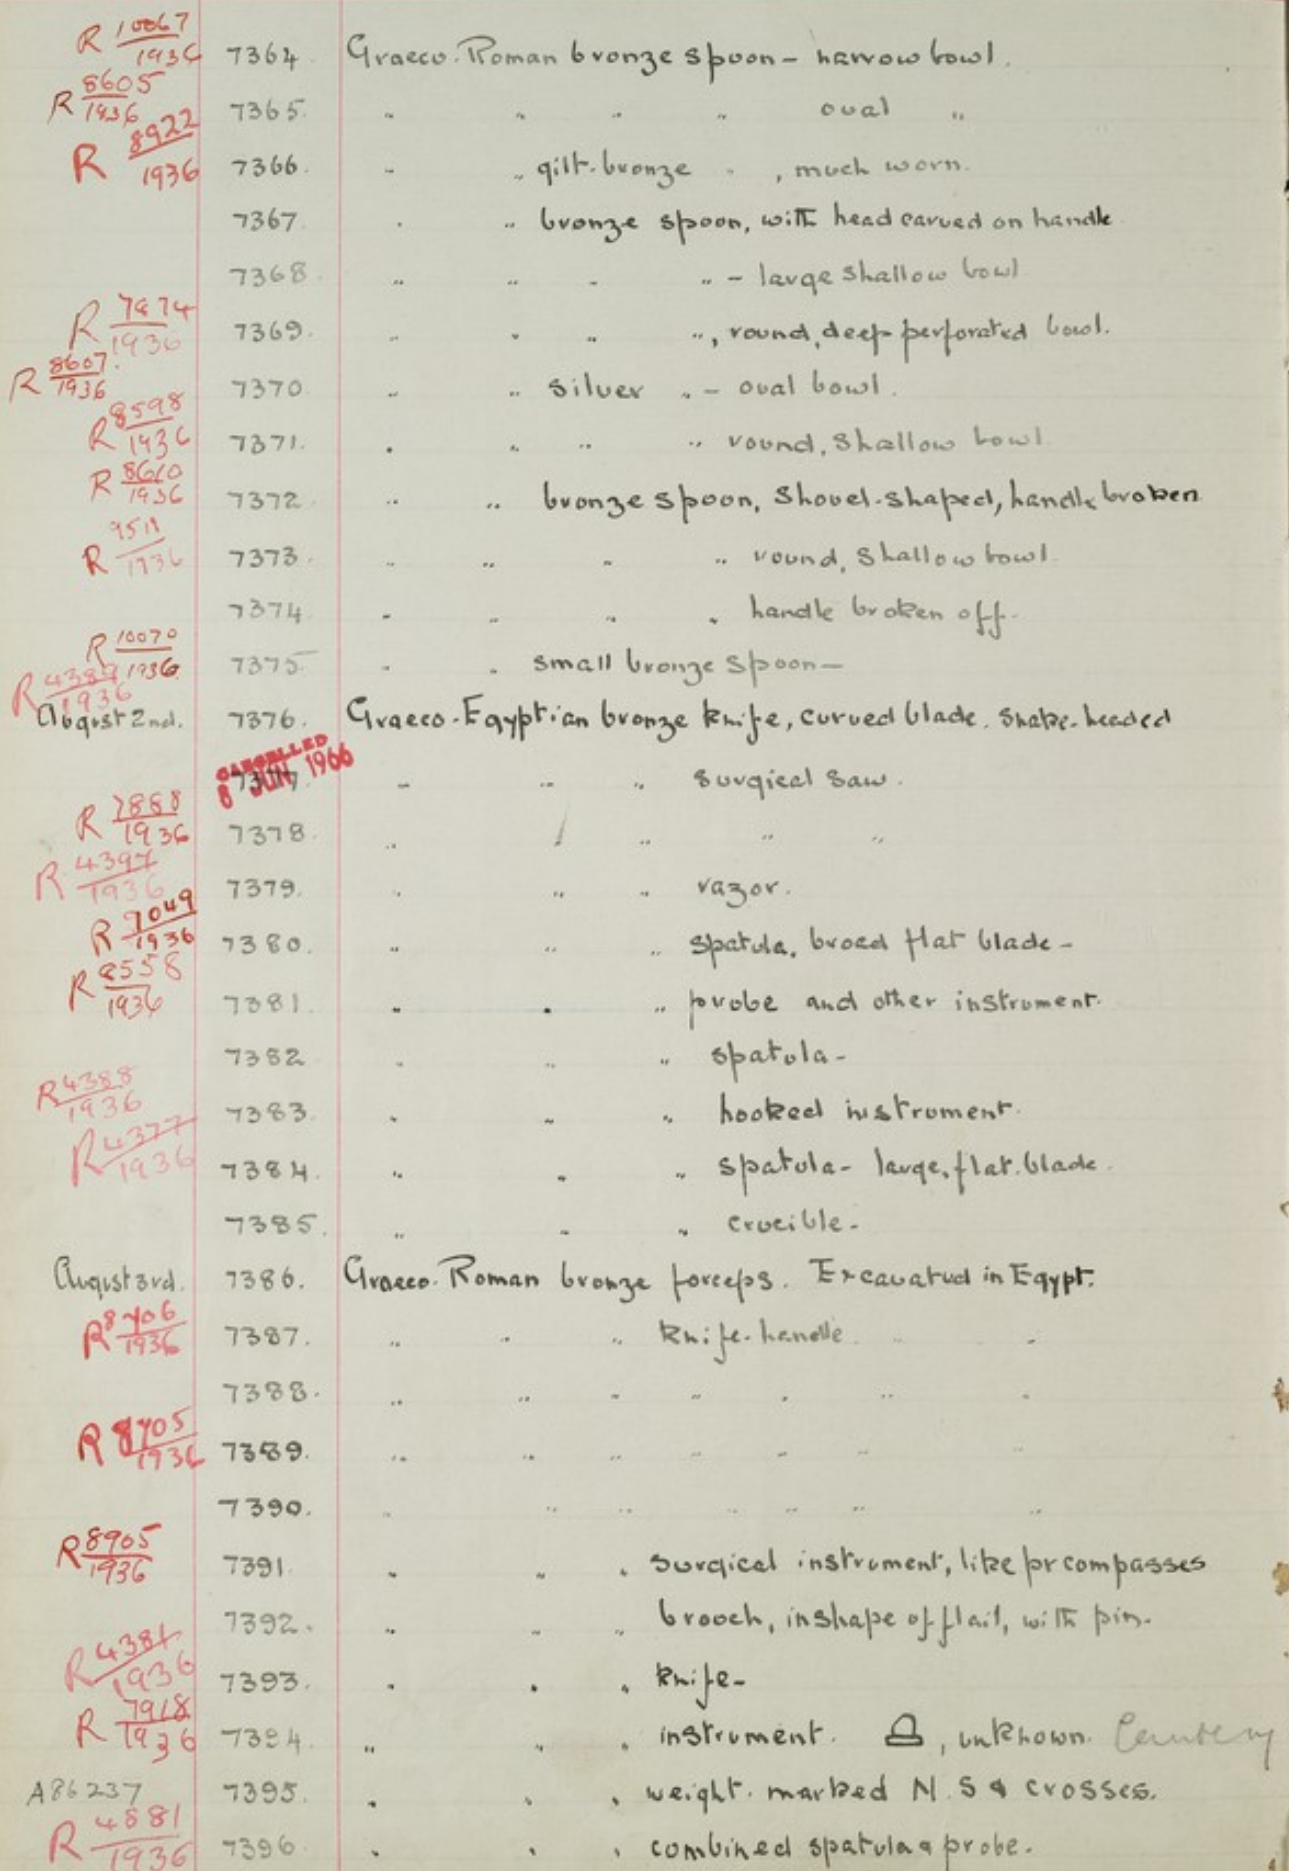 R 10067/1936 7364. Graeco-Roman bronze spoon - narrow bowl.
R 8605/1936 7365. " " " " oval "
R 8922/1936 7366. " " gilt-bronze " , much worn.
7367. " " bronze spoon, with head carved on handle
7368. " " " " - large shallow bowl
R 7974/1936 7369. " " " ", round, deep perforated bowl.
R 8607/1936 7370. " " silver " - oval bowl.
R 8598/1936 7371. " " " " round, shallow bowl
R 8610/1936 7372. " " bronze spoon, shovel-shaped, handle broken
R 9511/1936 7373. " " " " round, shallow bowl.
7374. " " " " handle broken off.
R 10070/1936 7375. " " small bronze spoon -
R 4389/1936
August 2nd. 7376. Graeco-Egyptian bronze knife, curved blade. snake-headed
CANCELLED 8 JUN 1966 7377. " " " surgical saw.
R 7888/1936 7378. " " " "
R 4397/1936 7379. " " " razor.
R 9049/1936 7380. " " " spatula, broad flat blade -
R 8558/1936 7381. " " " probe and other instrument.
7382 " " " spatula -
R 4388/1936 7383. " " " hooked instrument.
R 4377/1936 7384. " " " spatula - large, flat blade.
7385. " " " crucible -
August 3rd. 7386. Graeco-Roman bronze forceps. Excavated in Egypt.
R 8706/1936 7387. " " " knife-handle " "
7388. " " " " " " "
R 8705/1936 7389. " " " " " " "
7390. " " " " " " "
R 8905/1936 7391. " " " surgical instrument, like pr compasses
7392. " " " brooch, in shape of flail, with pin.
R 4381/1936 7393. " " " knife -
R 7918/1936 7394. " " " instrument. , unknown. Cautery
A86237 7395. " " " weight. marked N. S & crosses.
R 4881/1936 7396. " " " combined spatula & probe.